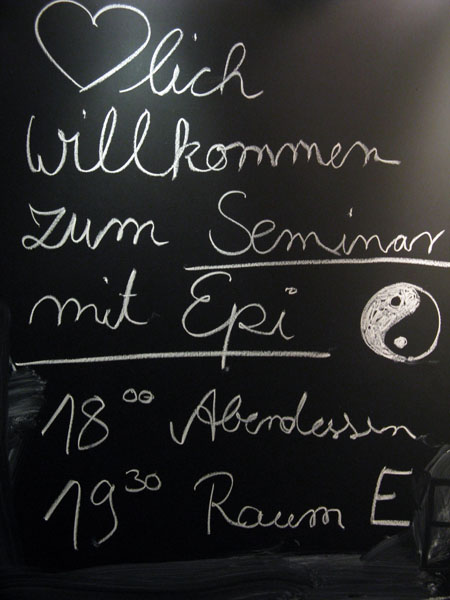 ♡lich
Willkommen
zum Seminar
mit Epi
18⁰⁰ Abendessen
19³⁰ Raum E